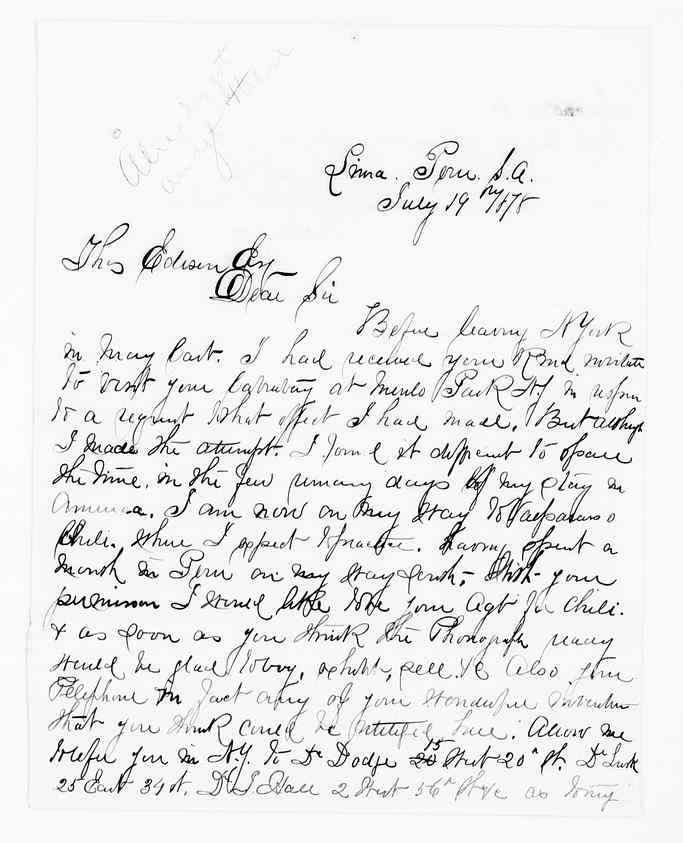 Lima. Peru. S.A.
July 19th/1878
Thos Edison Esq
Dear Sir
Before leaving N York
in May last. I had received your kind invitation
to visit your labratory at Menlo Park N.J. in respon
to a request to that effect I had made. But although
I made the attempt. I found it difficult to spare
the time, in the few remaing days of my stay in
America. I am now on my way to Valparaiso
Chili. where I expect to practice. having spent a
month in Peru on my way South, With your
permission I would like to be your Agt for Chili.
& as soon as you think the Phonograph ready
would be glad to buy, exhibit, sell &c Also your
Telephone in fact any of your wonderful invention
that you think could be utilized here. Allow me
to refer you in N.Y. to Dr Dodge 15 West 20th St. Dr
25 East 34 St. Dr J. Hall 2 West 56th St &c as to my